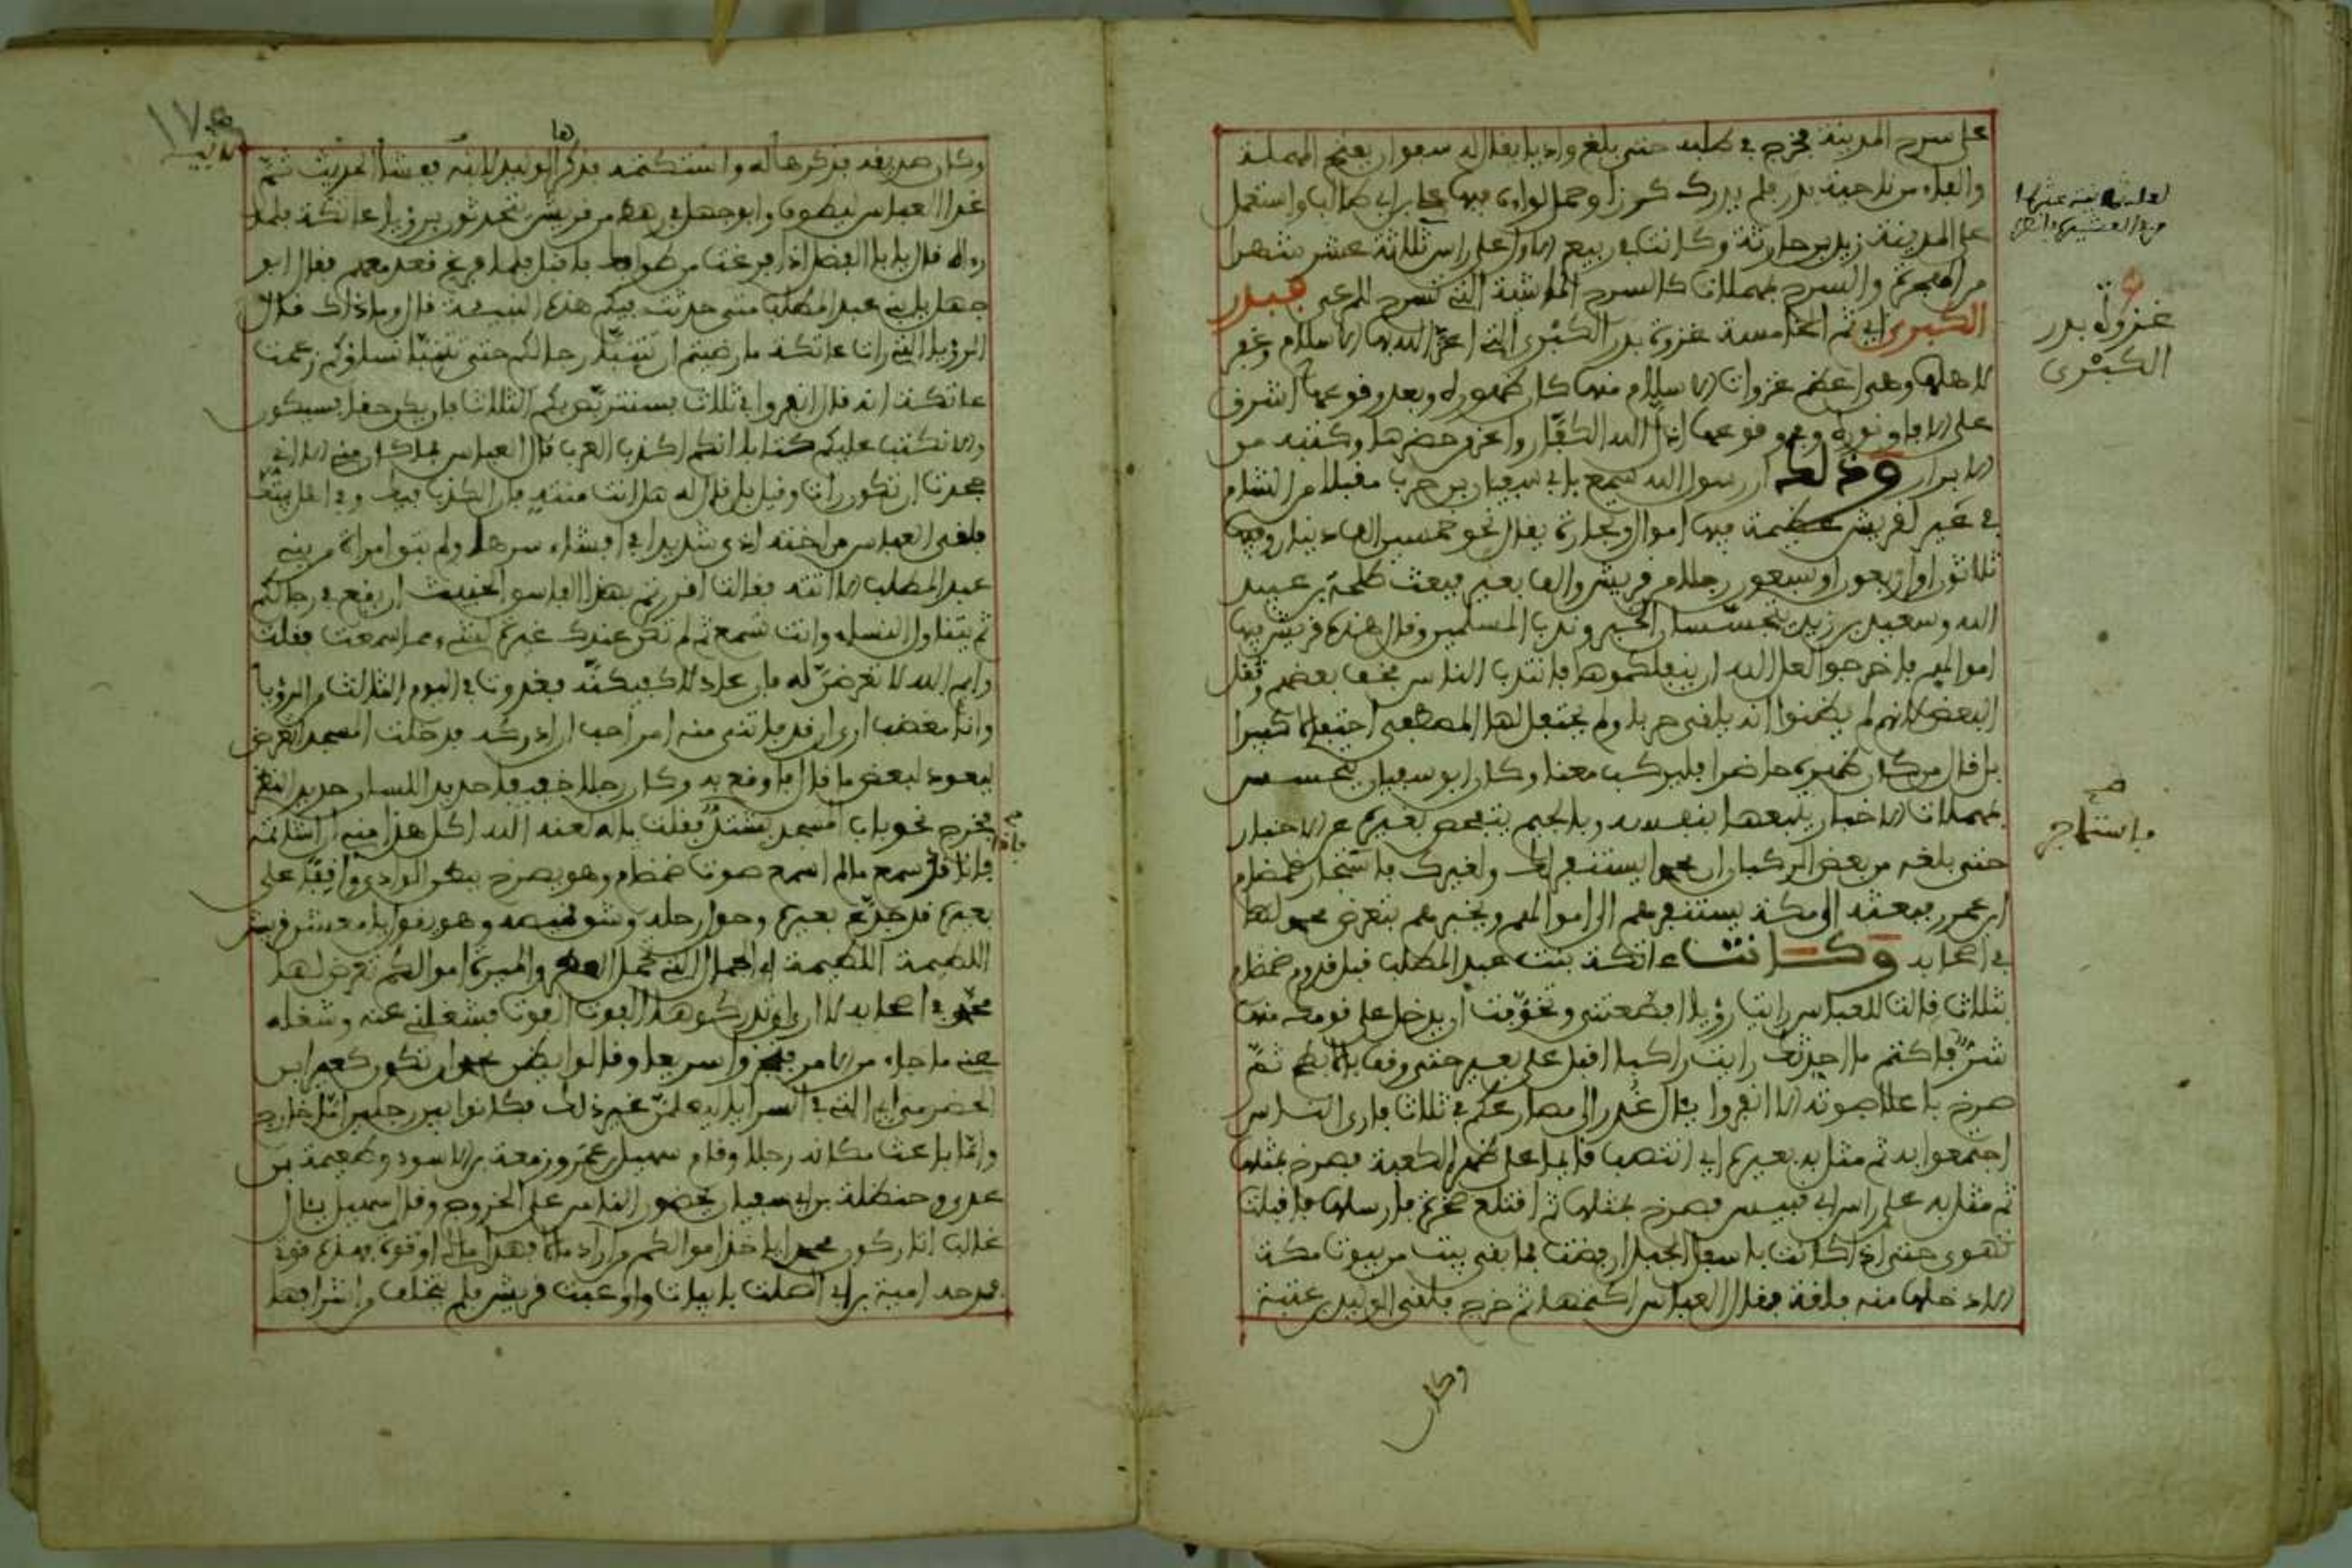 على سرح المدينة فخرج في طلبه حتى بلغ واديا يقال له سفوان بفتح المهملة
والفاء من ناحية بدر فلم يدرك كرزا وحمل لواءه فيها علي بن أبي طالب واستعمل
على المدينة زيد بن حارثة وكانت في ربيع الاول على راس ثلاثة عشر شهرا
من الهجرة والسرح بمهملات كالسرح الماشية التي تسرح للمرعى فبدر
الكبرى اي ثم الخامسة غزوة بدر الكبرى التي اعز الله بها الاسلام
لاهلها وهي اعظم غزوات الاسلام منها كان ظهوره وبعد وقوعها اشرق
على الافاق نوره ومن وقوعها اذل الله الكفار واعز من حضرها وكتبه من
الابرار وذلك ان رسول الله سمع بابي سفيان بن حرب مقبلا من الشام
في عير لقريش عظيمة فيها اموال وتجارة يقال نحو خمسين الف دينار وفيها
ثلاثون او اربعون او سبعون رجلا من قريش والف بعير فبعث طلحة بن عبيد
الله وسعيد بن زيد يتجسسان الخبر وندب المسلمين وقال هذه عير قريش فيها
اموالهم فاخرجوا لعل الله ان ينفلكموها فانتدب الناس فخف بعضهم وثقل
البعض لانهم لم يظنوا انه يلقى حربا ولم يحتفل لها المصطفى احتفالا كبيرا
بل قال من كان ظهره حاضرا فليركب معنا وكان ابو سفيان يتحسس
بمهملات الاخبار يتبعها بنفسه وبالجيم يتفحص بغيره عن الاخبار
حتى بلغه من بعض الركبان ان محمدا يستنفر لك ولعيرك فاستاجر ضمضم
ابن عمرو فبعثه الى مكة يستنفرهم الى اموالهم ويخبرهم بتعرض محمد لها
في اصحابه وكانت عاتكة بنت عبد المطلب قبل قدوم ضمضم
بثلاث قالت للعباس رايت رؤيا افظعتني وتخوفت ان يدخل على قومك منها
شر فاكتم ما احدثك رايت راكبا اقبل على بعير حتى وقف بالابطح ثم
صرخ باعلا صوته الا انفروا يال غدر الى مصارعكم في ثلاث فارى الناس
اجتمعوا به ثم مثل به بعيره اي انتصب قائما على ظهر الكعبة فصرخ بمثلها
ثم مثل به على راس ابي قبيس فصرخ بمثلها ثم اقتلع صخرة فارسلها فاقبلت
تهوي حتى اذا كانت باسفل الجبل ارفضت فما بقي بيت من بيوت مكة
الا دخلها منه فلقة فقال العباس اكتميها ثم خرج فلقي الوليد بن عتبة
وكان
غزوة بدر
الكبرى
صح
فاستاجر
وكان صديقه فذكرها له واستكتمه فذكر الوليد لابيه ففشا الحديث ثم
غدا العباس ليطوف وابو جهل في رهط من قريش يتحدثون برؤيا عاتكة فلما
راه قال يا ابا الفضل اذا فرغت من طوافك فاقبل فلما فرغ قعد معهم فقال ابو
جهل يا بني عبد المطلب متى حدثت فيكم هذه النبيئة قال وما ذاك قال
الرؤيا التي رات عاتكة ما رضيتم ان تتنبأ رجالكم حتى تتنبأ نساؤكم زعمت
عاتكة انه قال انفروا في ثلاث فسنتربص بكم الثلاث فان يكن حقا فسيكون
والا نكتب عليكم كتابا انكم اكذب العرب قال العباس فما كان مني الا اني
جحدت ان تكون رات وقيل بل قال له هل انت منته فان الكذب فيك وفي اهل بيتك
فلقي العباس من اخته اذى شديدا في افشاء سرها ولم تبق امراة من بني
عبد المطلب الا اتته فقالت اقررتم بهذا الفاسق الخبيث ان يقع في رجالكم
ثم يتناول النساء وانت تسمع ثم لم تكن عندك غيرة لشيء مما سمعت فقلت
وايم الله لا تعرضن له فان عاد لاكفيكنه فغدوت في اليوم الثالث من الرؤيا
وانا مغضب ارى ان قد فاتني منه امر احب ان ادركه فدخلت المسجد اتعرض
ليعود لبعض ما قال فاوقع به وكان رجلا خفيفا حديد اللسان حديد النظر
فخرج نحو باب المسجد يشتد فقلت ماله لعنه الله اكل هذا مني ان اشاتمه
فاذا قد سمع ما لم اسمع صوت ضمضم وهو يصرخ ببطن الوادي واقفا على
بعيره قد جدع بعيره وحول رحله وشق قميصه وهو يقول يا معشر قريش
اللطيمة اللطيمة اي الجمال التي تحمل العطر والميرة اموالكم تعرض لها
محمد في اصحابه لا ارى ان تدركوها الغوث الغوث فشغلني عنه وشغله
عني ما جاء من الامر فتجهزوا سريعا وقالوا يظن محمد ان تكون كعير ابن
الحضرمي اي التي في السرايا ليعلمن غير ذلك فكانوا بين رجلين اما خارج
واما باعث مكانه رجلا وقام سهيل بن عمرو وزمعة بن الاسود وطعيمة بن
عدي وحنظلة بن ابي سفيان يحضون الناس على الخروج وقال سهيل يال
غالب اتاركون محمدا ياخذ اموالكم من اراد مالا فهذا مالي او قوة فهذه قوة
فمدحه امية بن ابي الصلت بابيات واوعبت قريش فلم يتخلف من اشرافها
ها
صح
فاذا